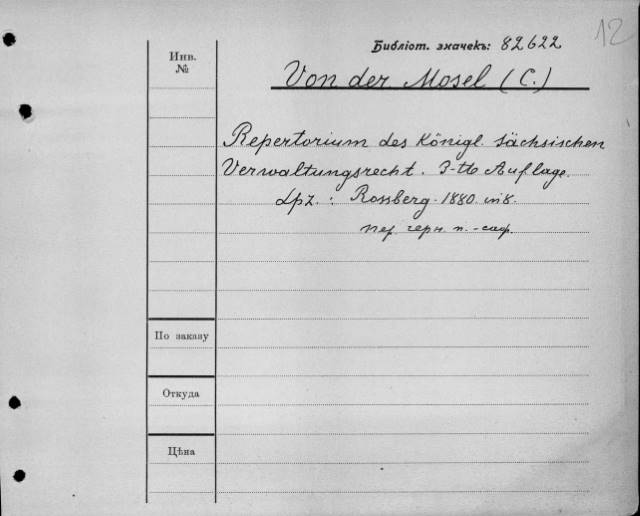 12
Библіот. значекъ: 82622
Инв.
№
Von der Mosel (C.)
Repertorium des Königl. Sächsischen
Verwaltungsrecht. 3-tte Auflage.
Lpz.: Rossberg. 1880. in 8.
пер. черн. п.-саф.
По заказу
Откуда
Цѣна